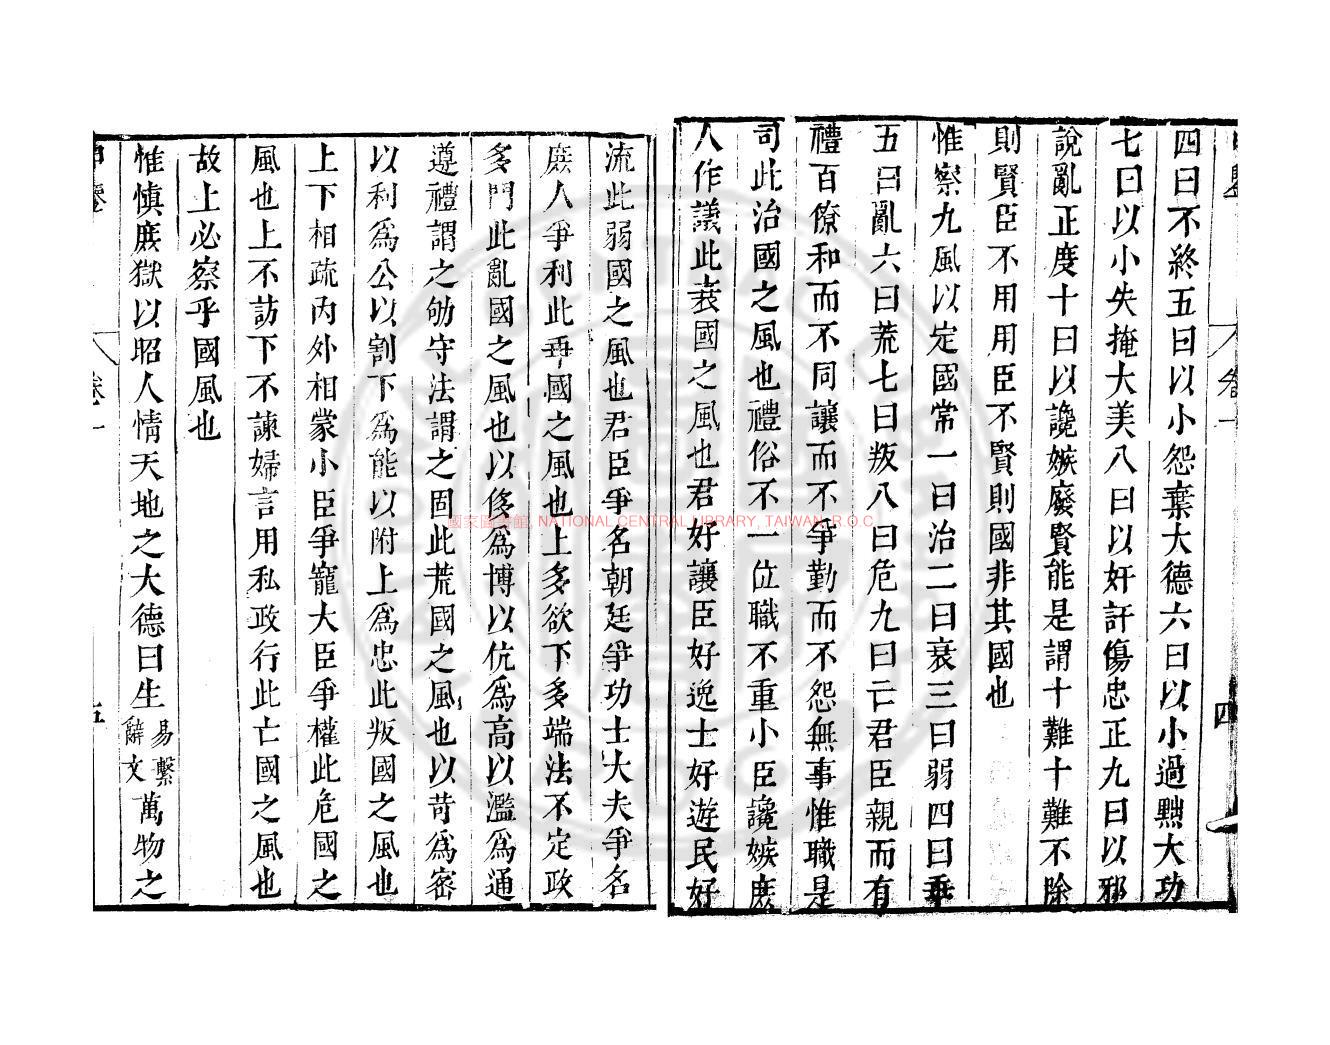 四曰不終五曰以小怨棄大德六曰以小過黜大功
七曰以小失掩大美八曰以奸訐傷忠正九曰以邪
說亂正度十曰以讒嫉廢賢能是謂十難十難不除
則賢臣不用用臣不賢則國非其國也
惟察九風以定國常一曰治二曰衰三曰弱四曰乖
五曰亂六曰荒七曰叛八曰危九曰亡君臣親而有
禮百僚和而不同讓而不爭勤而不怨無事惟職是
司此治國之風也禮俗不一位職不重小臣讒嫉庶
人作議此衰國之風也君好讓臣好逸士好遊民好
卷一
四
流此弱國之風也君臣爭名朝廷爭功士大夫爭名
庶人爭利此乖國之風也上多欲下多端法不定政
多門此亂國之風也以侈爲博以伉爲高以濫爲通
遵禮謂之劬守法謂之固此荒國之風也以苛爲密
以利爲公以割下爲能以附上爲忠此叛國之風也
上下相疏內外相蒙小臣爭寵大臣爭權此危國之
風也上不訪下不諫婦言用私政行此亡國之風也
故上必察乎國風也
惟慎庶獄以昭人情天地之大德曰生易繫辭文萬物之
卷一
五
國家圖書館, NATIONAL CENTRAL LIBRARY, TAIWAN, R.O.C